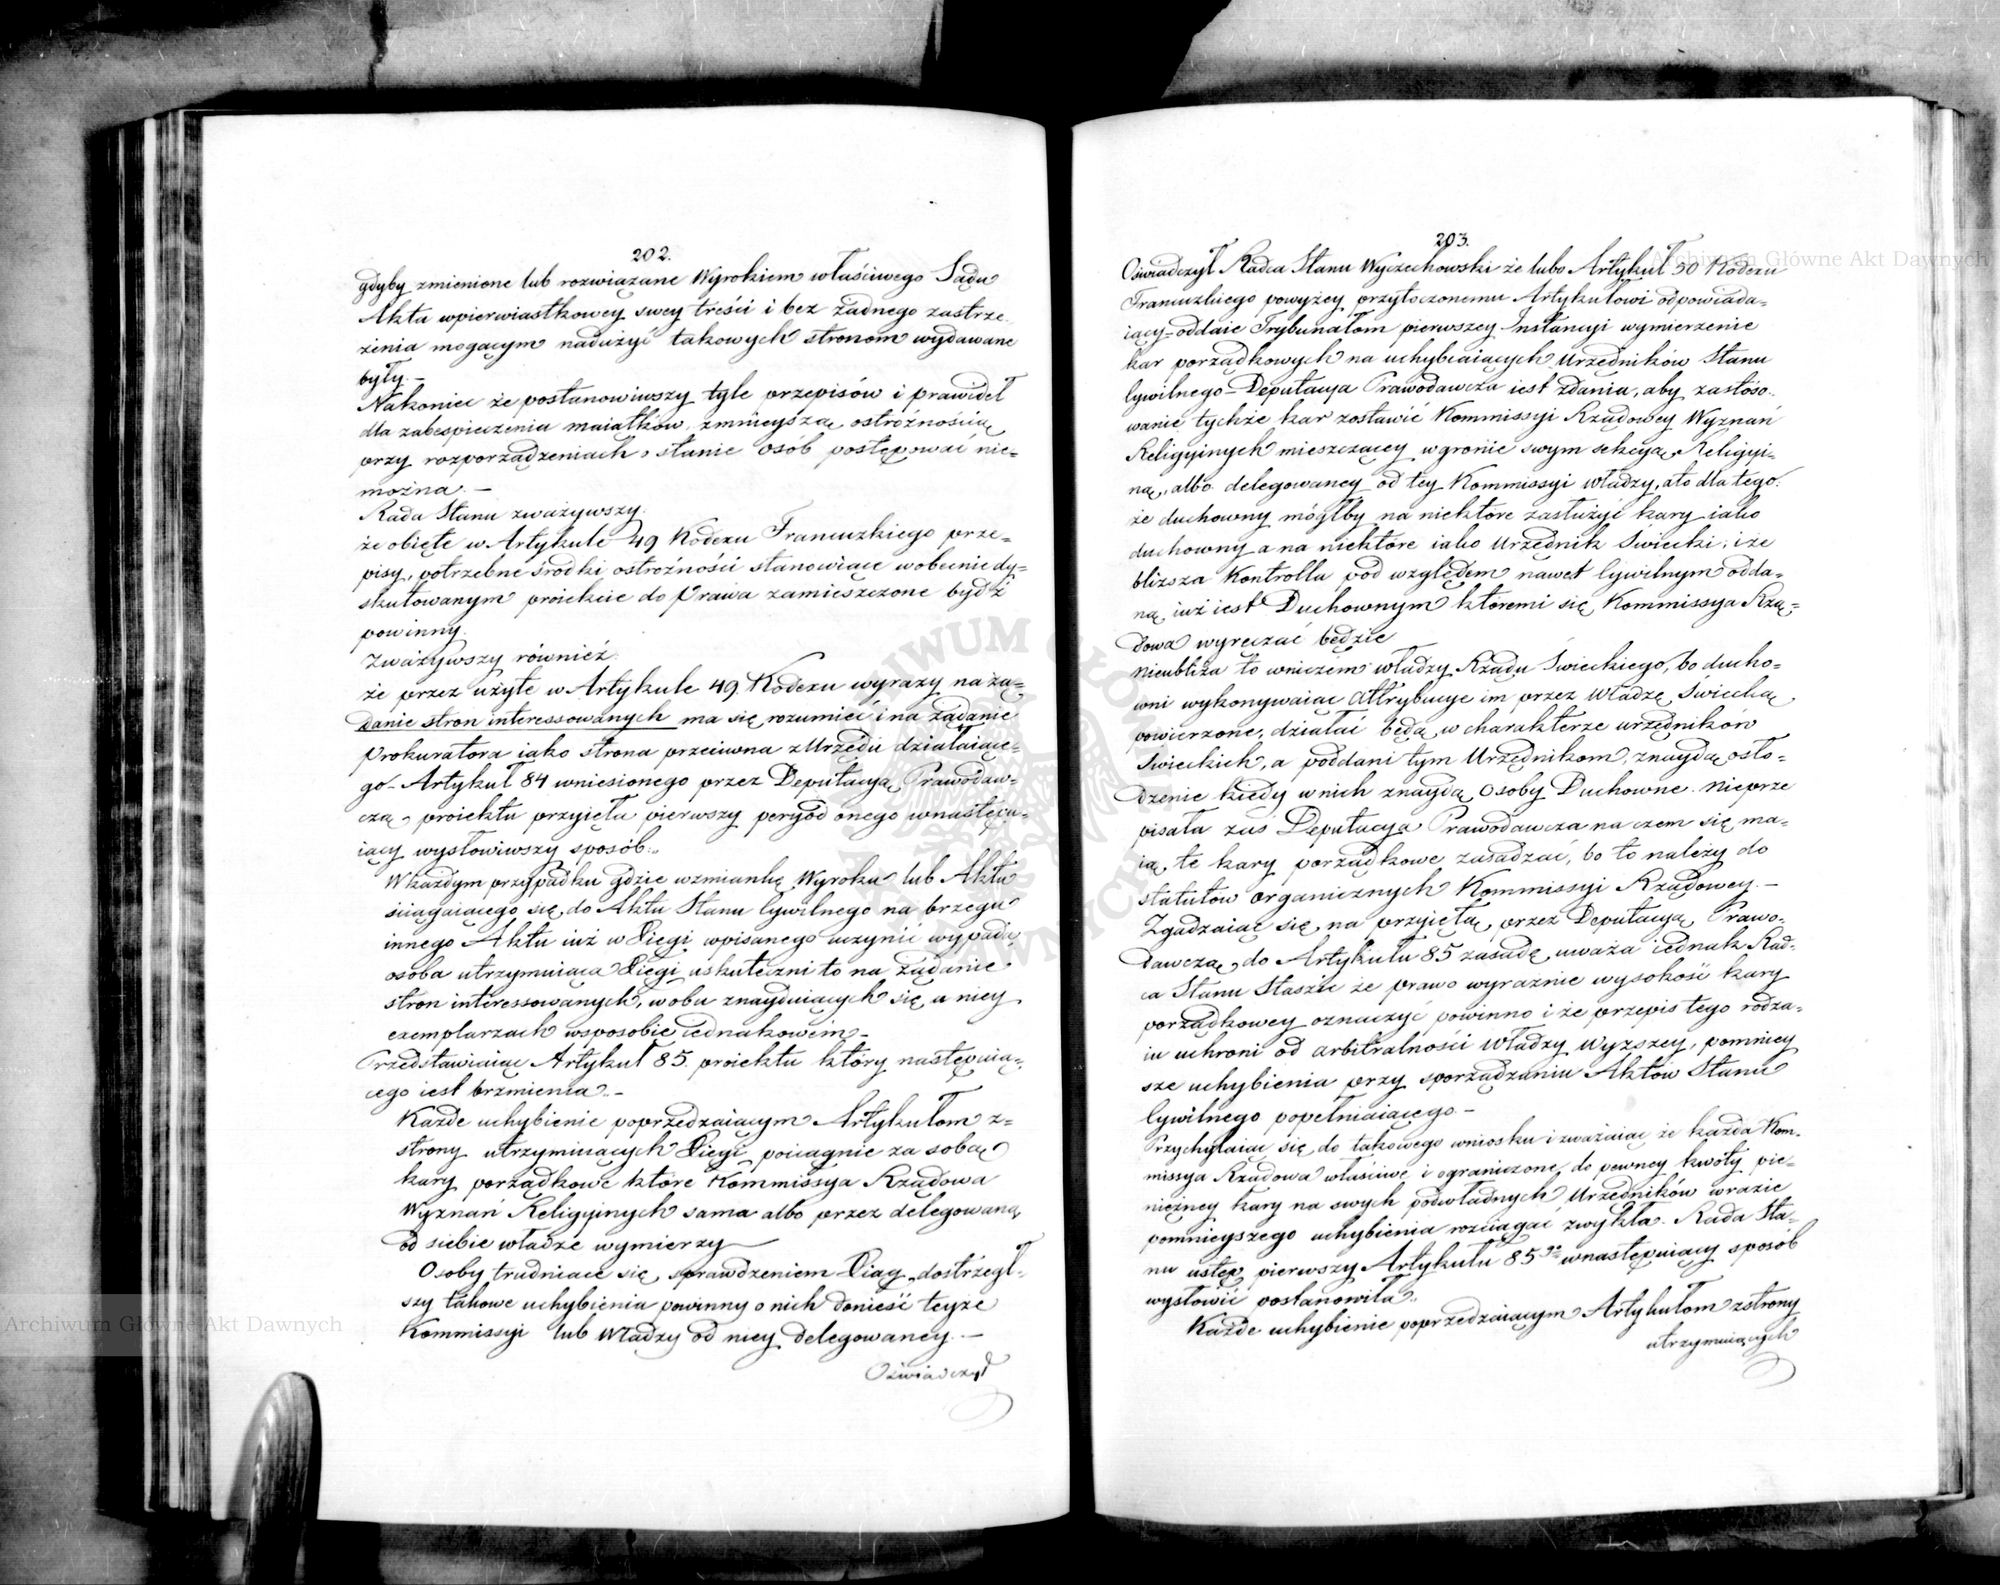 202.
gdyby zmienione lub rozwiązane Wyrokiem właściwego Sądu
Akta wpierwiastkowey swey treści i bez żadnego zastrze
żenia mogącym nadużyć takowych stronom wydawane
były. –
Nakoniec że postanowiwszy tyle przepisów i prawideł
dla zabespieczenia maiątków, zmnieyszą ostrożnością
przy rozporządzeniach o stanie osób postępować nie=
można. –
Rada Stanu zważywszy.
że obięte w Artykule 49 Kodexu Francuzkiego prze=
pisy, potrzebne środki ostrożności stanowiące w obecnie dy=
skutowanym proiekcie do Prawa zamieszczone bydź
powinny.
Zważywszy również.
że przez użyte w Artykule 49. Kodexu wyrazy na żą=
danie stron interessowanych ma się rozumieć i na żądanie
Prokuratora iako strona przeciwna z Urzędu działaiące=
go – Artykuł 84 wniesionego przez Deputacyą Prawodaw=
czą, proiektu przyięła pierwszy peryód onego wnastępu=
iący wysłowiwszy sposób.,
W każdym przypadku gdzie wzmiankę Wyroku lub Aktu
ściągaiącego się do Aktu Stanu Cywilnego na brzegu
innego Aktu iuż w Xięgi wpisanego uczynić wypada,
osoba utrzymuiąca Xięgi uskuteczni to na żądanie
stron interessowanych, w obu znayduiących się u niey
exemplarzach wsposobie iednakowem –
Przedstawiaiąc Artykuł 85. proiektu który następuią=
cego iest brzmienia. –
Każde uchybienie poprzedzaiącym Artykułom z=
strony utrzymuiących Xięgi pociągnie za sobą
kary porządkowe które Kommissya Rządowa
Wyznań Religiynych sama albo przez delegowaną
od siebie władze wymierzy
Osoby trudniące się sprawdzeniem Xiąg, dostrzegł=
szy takowe uchybienia powinny o nich donieść teyże
Kommissyi lub Władzy od niey delegowaney. –
Oświadczył
203.
Oświadczył Radca Stanu Wyczechowski że lubo Artykuł 50 Kodexu
Francuzkiego powyżey przytoczonemu Artykułowi odpowiada=
iący – oddaie Trybunałom pierwszey Instancyi wymierzenie
kar porządkowych na uchybiaiących Urzędników Stanu
Cywilnego – Deputacya Prawodawcza iest zdania, aby zastóso=
wanie tychże kar zostawić Kommissyi Rządowey Wyznań
Religiynych mieszczącey w gronie swym sekcyą Religiy=
ną, albo delegowaney od tey Kommissyi władzy, a to dla tego.
że duchowny mógłby na niektóre zasłużyć kary iako
duchowny a na niektóre iako Urzędnik Świecki; i że
bliższa Kontrolla pod względem nawet Cywilnym odda=
ną iuż iest Duchownym któremi się Kommissya Rzą=
dowa wyręczać będzie
Nieubliża to wniczem władzy Rządu Świeckiego, bo ducho=
wni wykonywaiąc Attrybucye im przez Władzę Świecką
powierzone, działać będą w charakterze urzędników
Świeckich, a poddani tym Urzędnikom, znaydą osło=
dzenie kiedy w nich znaydą Osoby Duchowne. Nieprze
pisała zaś Deputacya Prawodawcza na czem się ma=
ią te kary porządkowe zasadzać, bo to należy do
statutów organicznych Kommissyi Rządowey. –
Zgadzaiąc się na przyiętą przez Deputacyą Prawo=
dawczą, do Artykułu 85 zasadę, uważa iednak Rad=
ca Stanu Staszic że prawo wyraźnie wysokość kary
porządkowey oznaczyć powinno i że przepis tego rodza=
iu uchroni od arbitralności Władzy Wyższey, pomniey
sze uchybienia przy sporządzaniu Aktów Stanu
Cywilnego popełniaiącego –
Przychylaiąc się do takowego wniosku i zważaiąc że każda Kom=
missya Rządowa właściwe i ograniczone do pewney kwoty pie=
niężney kary na swych podwładnych Urzędników wrazie
pomnieyszego uchybienia rozciągać zwykła. Rada Sta=
nu ustęp pierwszy Artykułu 85go wnastępuiący sposób
wysłowić postanowiła.,
Każde uchybienie poprzedzaiącym Artykułom zstrony
utrzymuiących
Archiwum Główne Akt Dawnych
Archiwum Główne Akt Dawnych